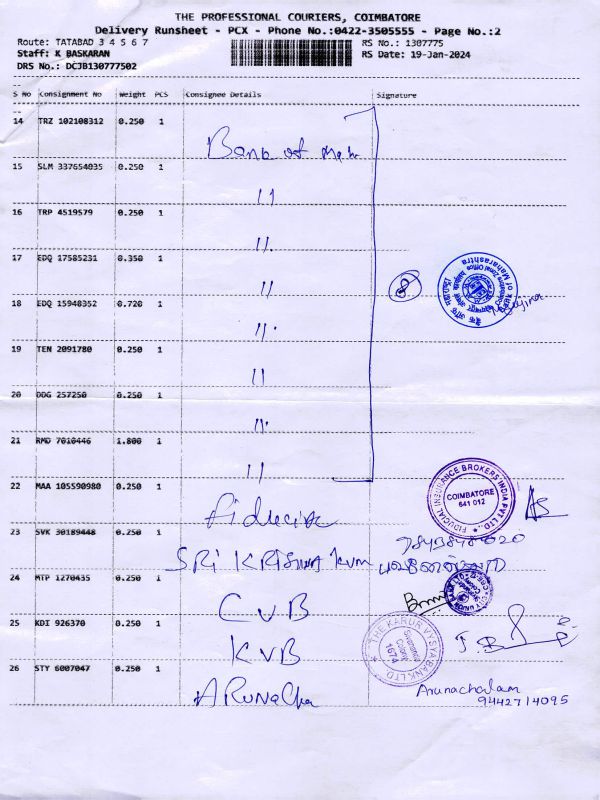 THE PROFESSIONAL COURIERS, COIMBATORE
Delivery Runsheet - PCX - Phone No.:0422-3505555 - Page No.:2
Route: TATABAD 3 4 5 6 7
Staff: K BASKARAN
DRS No.: DCJB130777502
RS No.: 1307775
RS Date: 19-Jan-2024
S No Consignment No Weight PCS Consignee Details Signature
14 TRZ 102108312 0.250 1 Bank of
15 SLM 337654035 0.250 1 "
16 TRP 4519579 0.250 1 "
17 EDQ 17585231 0.350 1 "
18 EDQ 15948352 0.720 1 "
8
Bank of Maharashtra
19 TEN 2091780 0.250 1 "
20 DDG 257250 0.250 1 "
21 RMD 7010446 1.800 1 "
22 MAA 105590980 0.250 1
FIDUCIAL INSURANCE BROKERS INDIA PVT LTD.,
COIMBATORE
641 012
23 SVK 30189448 0.250 1 SRI KRISHNA
24 MTP 1270435 0.250 1 CUB
25 KDI 926370 0.250 1 KVB
THE KARUR VYSYA BANK LTD
1674
26 STY 6007047 0.250 1 ARUNACha
Arunachalam
9442714095